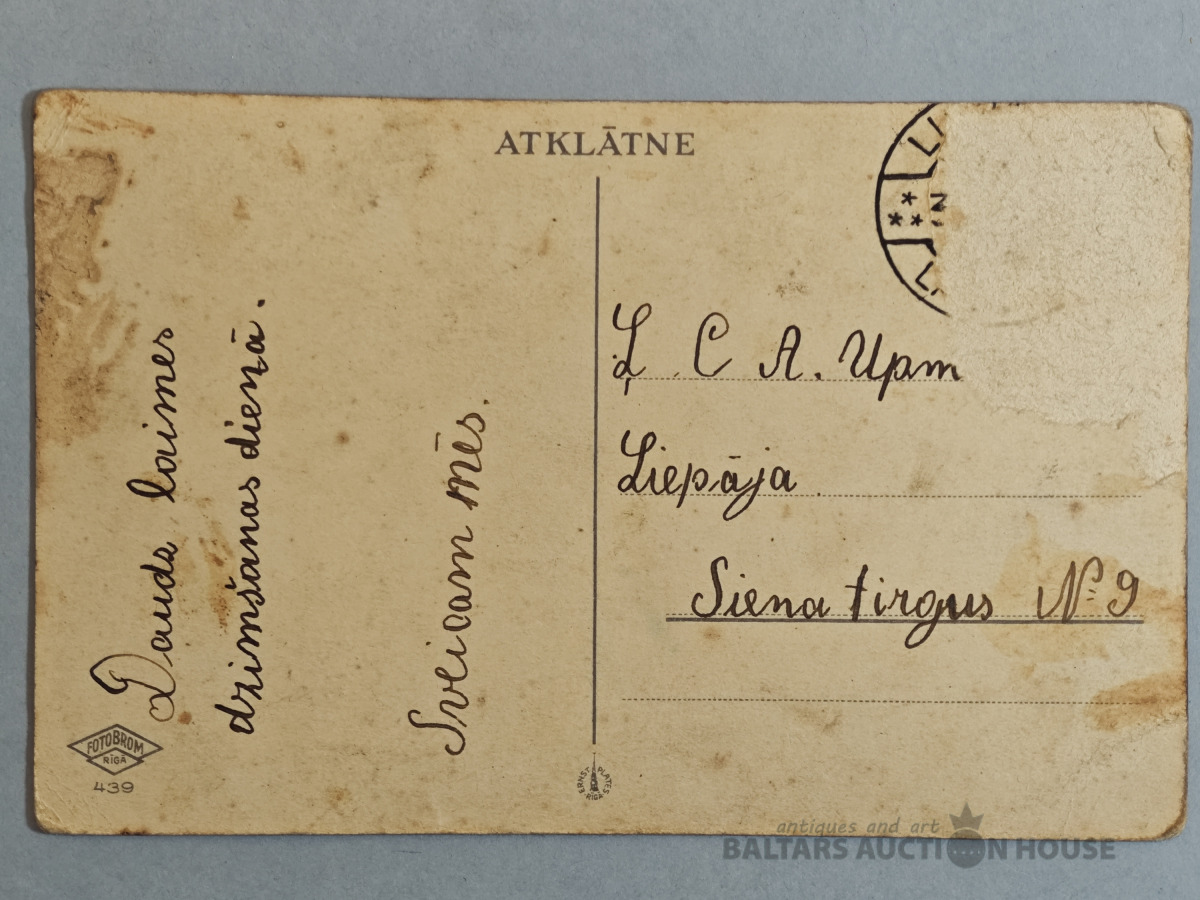 ATKLĀTNE
Daudz laimes
dzimšanas dienā.
Sveicam mēs.
Ļ C A. Upm
Liepāja
Siena tirgus № 9
FOTOBROM
RĪGĀ
439
ERNST PLATES
RĪGĀ
LI
antiques and art
BALTARS AUCTION HOUSE